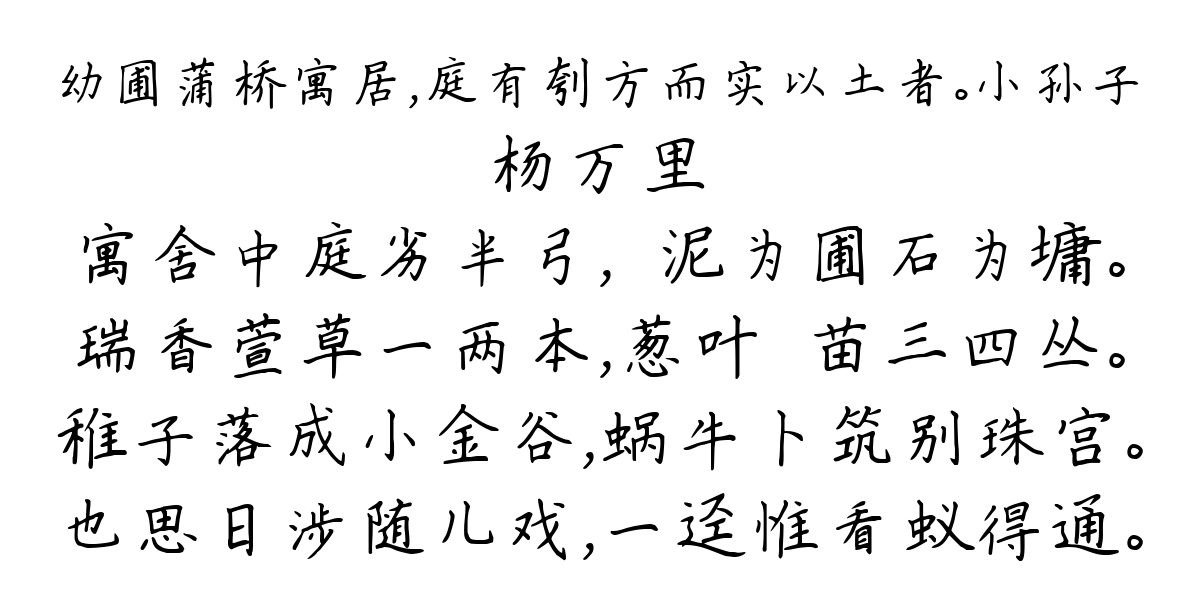 幼圃蒲桥寓居,庭有刳方而实以土者。小孙子
杨万里
寓舍中庭劣半弓，泥为圃石为墉。
瑞香萱草一两本,葱叶 苗三四丛。
稚子落成小金谷,蜗牛卜筑别珠宫。
也思日涉随儿戏,一迳惟看蚁得通。